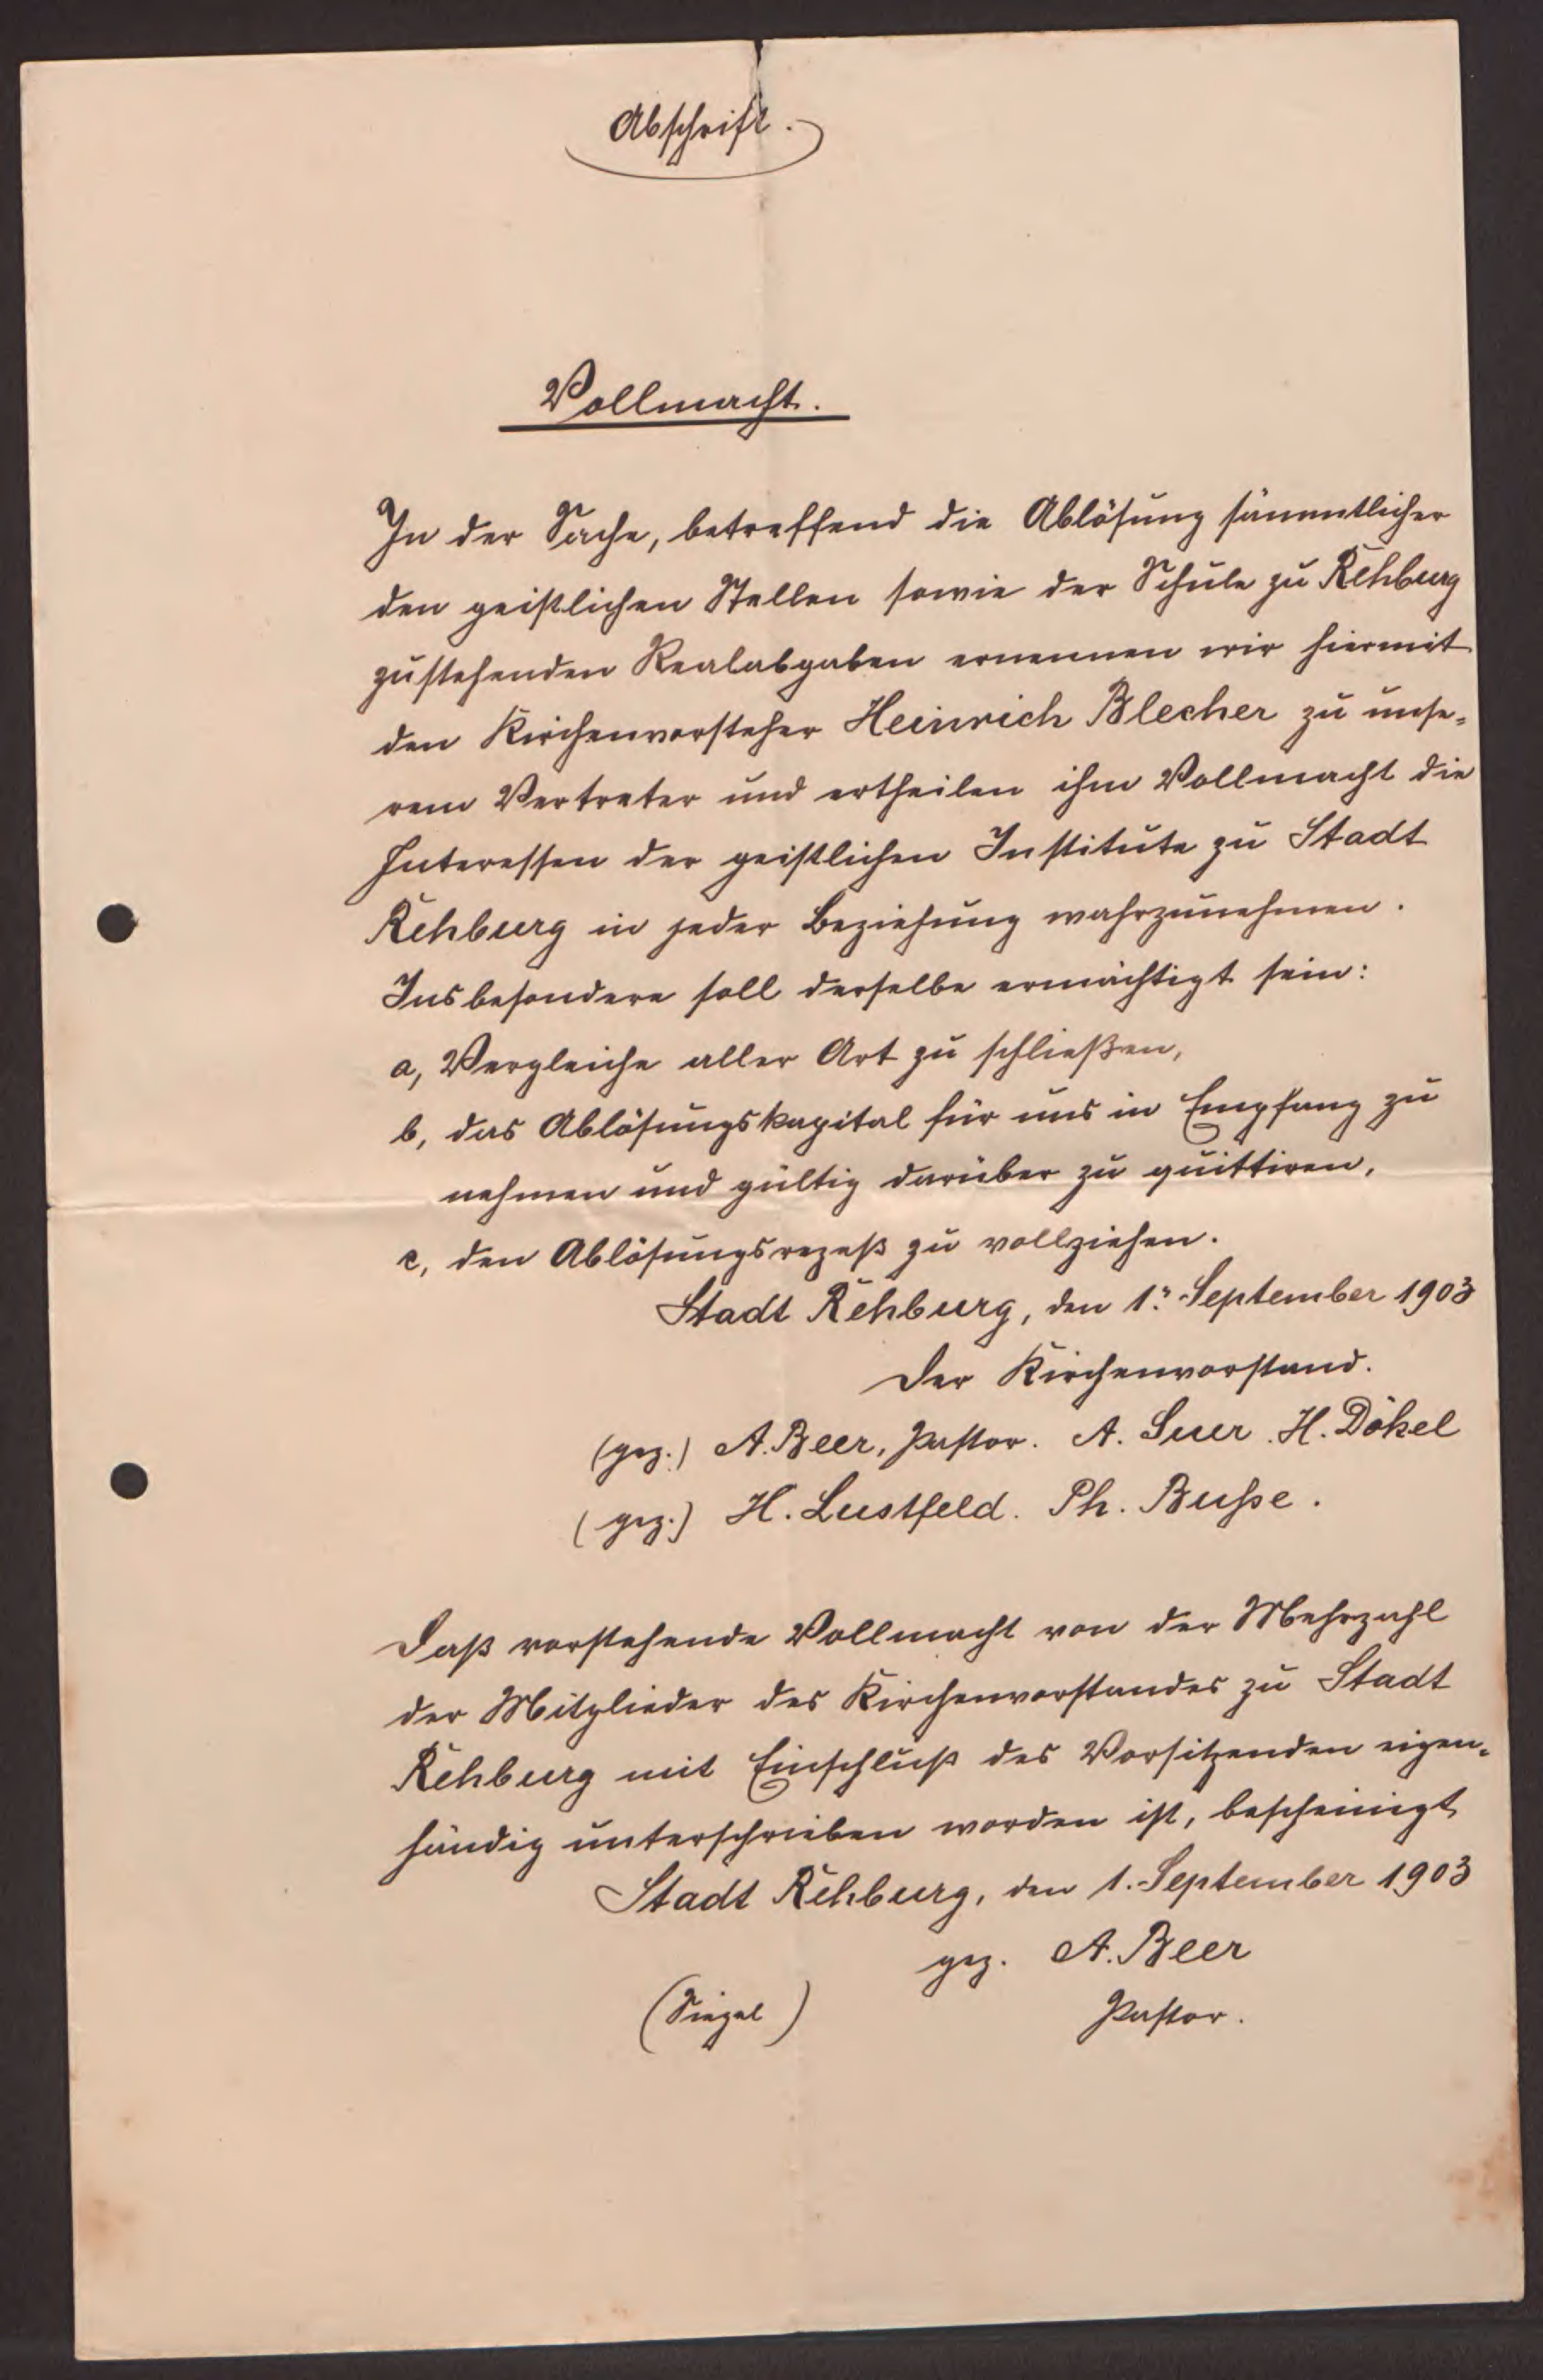 Abschrift.
Vollmacht.
In der Sache, betreffend die Ablösung sämmtlicher
den geistlichen Stellen sowie der Schule zu Rehburg
zustehenden Realabgaben ernennen wir hiermit
den Kirchenvorsteher Heinrich Blecher zu unse=
rem Vertreter und ertheilen ihm Vollmacht die
Interessen der geistlichen Institute zu Stadt
Rehburg in jeder Beziehung wahrzunehmen.
Insbesondere soll derselbe ermächtigt sein:
a, Vergleiche aller Art zu schließen,
b, das Ablösungskapital für uns in Empfang zu
nehmen und gültig darüber zu quittiren,
c, den Ablösungsrezeß zu vollziehen.
Stadt Rehburg, den 1. September 1903
Der Kirchenvorstand.
(gez.) A. Beer, Pastor. A. Suer. H. Dökel
(gez.) H. Lustfeld. Ph. Busse.
Daß vorstehende Vollmacht von der Mehrzahl
der Mitglieder des Kirchenvorstandes zu Stadt
Rehburg mit Einschluß des Vorsitzenden eigen=
händig unterschrieben worden ist, bescheinigt
Stadt Rehburg, den 1. September 1903
gez. A. Beer
(Siegel) Pastor.